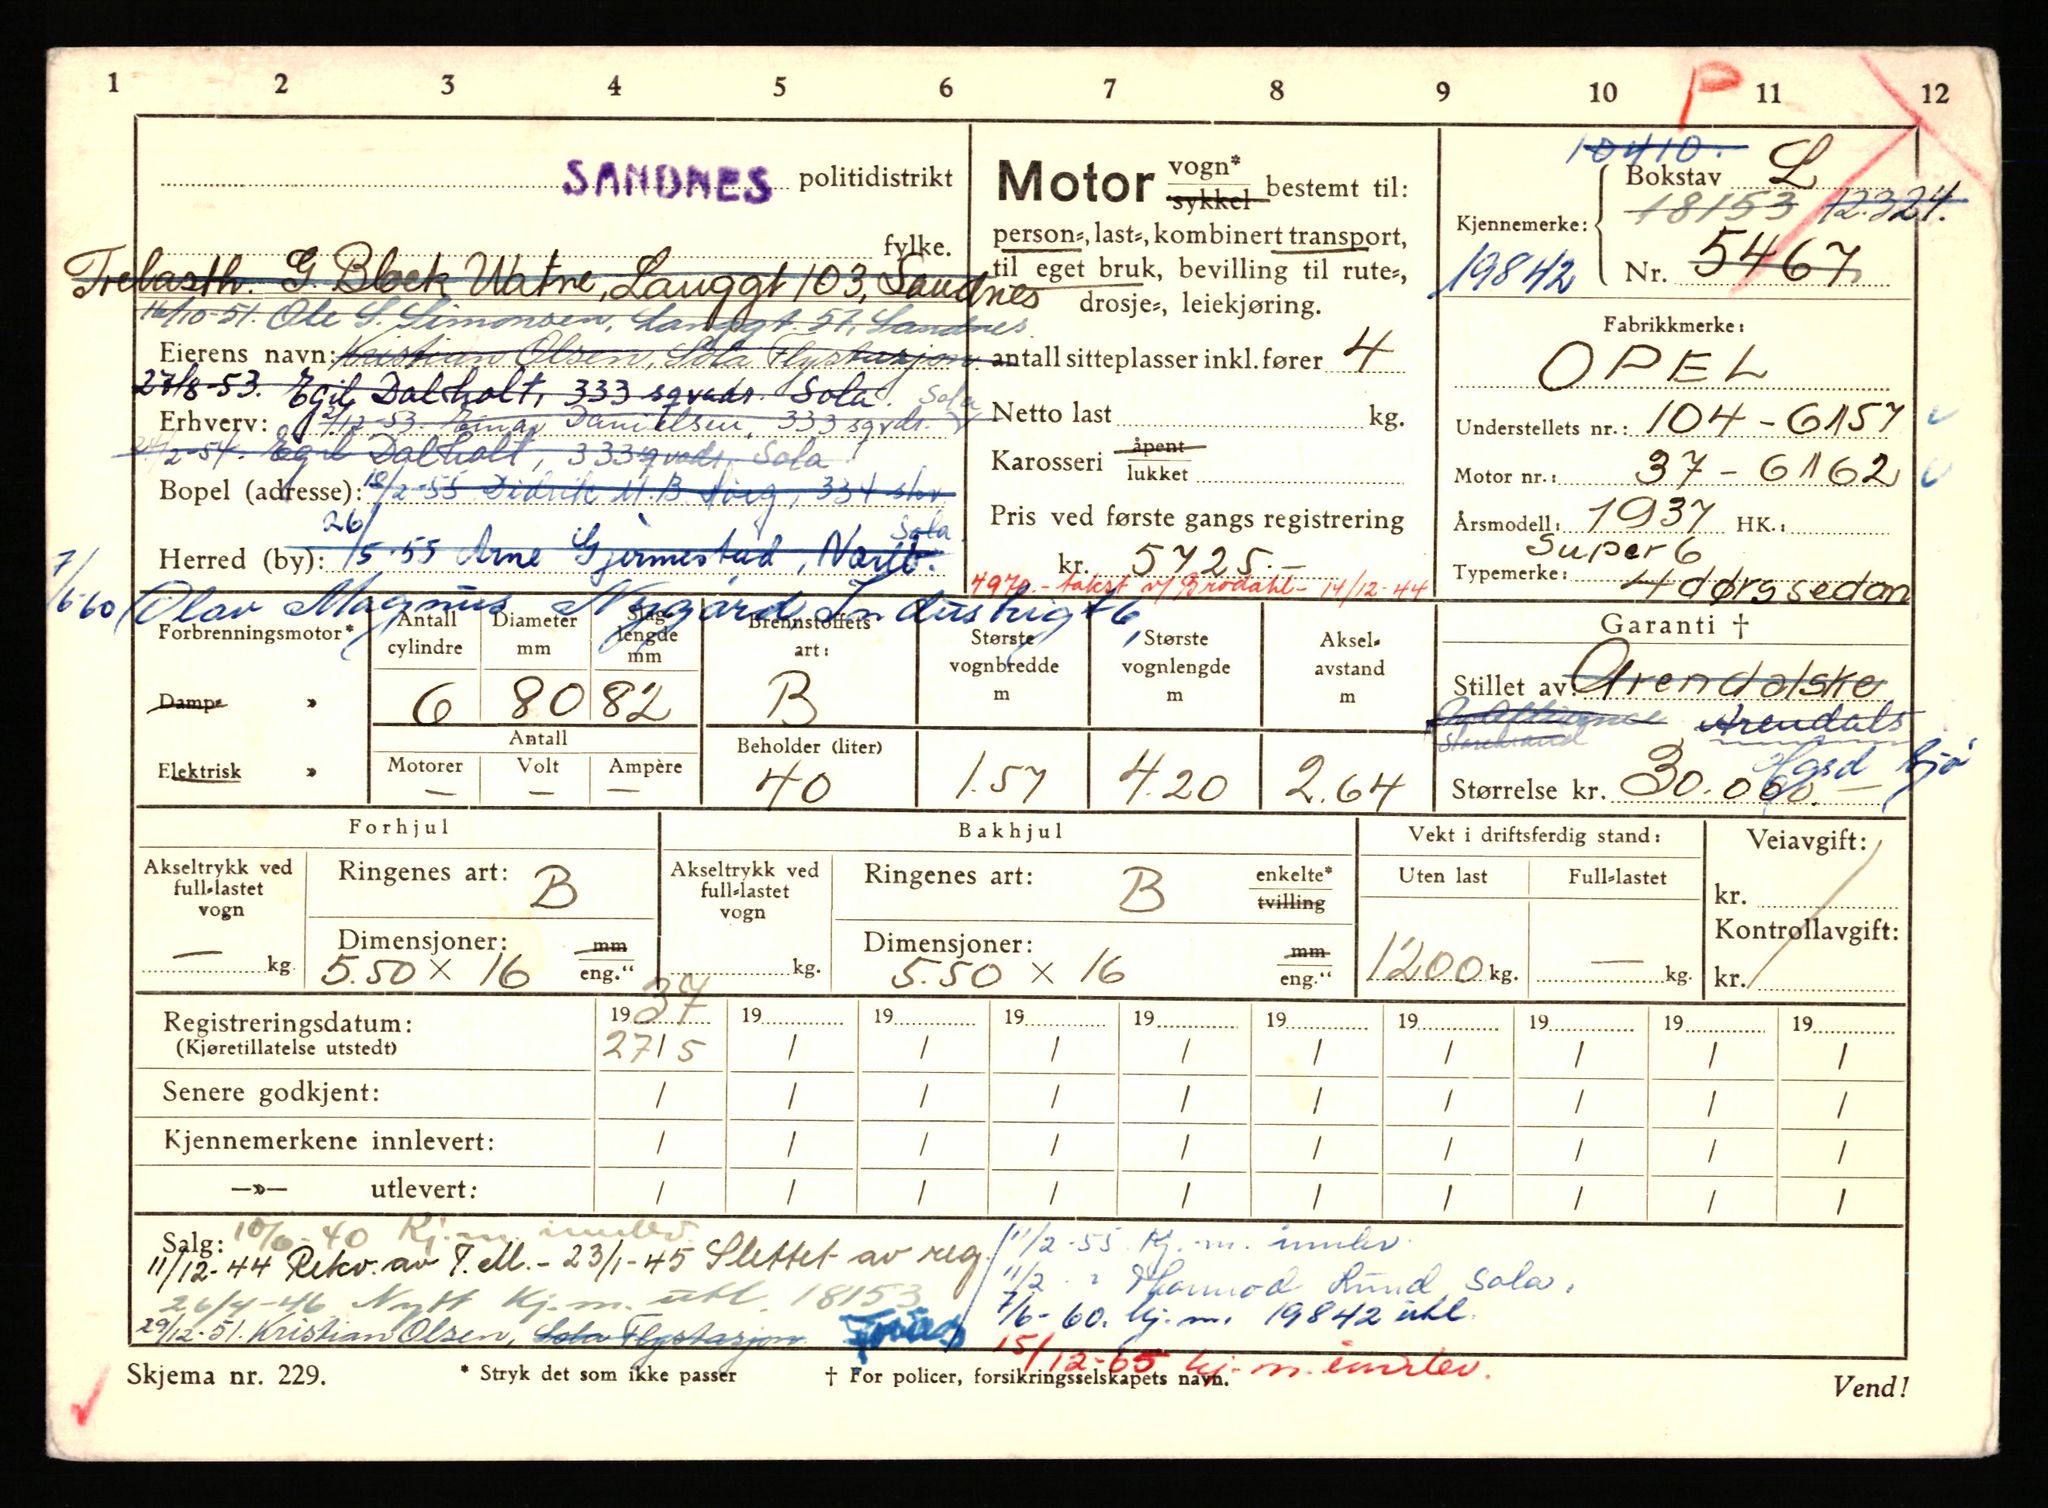 1 2 3 4 5 6 7 8 9 10 P 11 12
SANDNES politidistrikt
fylke.
Trelasth. G. Block Watne, Langgt 103, Sandnes
16/10-51. Ole S. Simonsen, Langgt. 57, Sandnes
Eierens navn: Kristian Olsen, Sola Flystasjon
27/8-53. Egil Dalholt, 333 sqvadr. Sola.
Erhverv: 7/12-53. Einar Danielsen, 333 sqvdr. Sola
24/2-54. Egil Dalholt, 333 sqvadr, Sola
Bopel (adresse): 10/2-55 Didrik M.B. 334 skv Sola
Herred (by): 26/5-55 Arne Gjermestad, Nærbø.
7/6-60 Olav Magnus Nygård, Industrigt 6,
Motor vogn* sykkel bestemt til:
person-, last-, kombinert transport,
til eget bruk, bevilling til rute-,
drosje-, leiekjøring.
antall sitteplasser inkl. fører 4
Netto last kg.
Karosseri åpent lukket
Pris ved første gangs registrering
kr. 5725.-
4970.- takst v/ Brodahl- 14/12-44
10410.
Bokstav L
18153 12.324.
Kjennemerke:
19842 Nr. 5467
Fabrikkmerke:
OPEL
Understellets nr.: 104-6157
Motor nr.: 37-6162
Årsmodell: 1937 HK.:
Super 6
Typemerke: 4 dørs sedan
Forbrenningsmotor* Antall cylindre Diameter mm Slaglengde mm Brennstoffets art: Største vognbredde m Største vognlengde m Akselavstand m
Damp- » 6 80 82 B
Antall Beholder (liter)
Elektrisk » Motorer — Volt — Ampère — 40 1.57 4.20 2.64
Garanti †
Stillet av: Arendalske
Arendals
Storebrand
Størrelse kr. 30.000.—
Forhjul Bakhjul Vekt i driftsferdig stand: Veiavgift:
Akseltrykk ved full-lastet vogn — kg. Ringenes art: B
Dimensjoner: 5.50 x 16 mm eng."
Akseltrykk ved full-lastet vogn kg. Ringenes art: B enkelte* tvilling
Dimensjoner: 5.50 x 16 mm eng."
Uten last 1200 kg. Full-lastet — kg.
kr.
Kontrollavgift:
kr.
Registreringsdatum: 19 37 19 19 19 19 19 19 19 19 19
(Kjøretillatelse utstedt) 27/5 / / / / / / / / /
Senere godkjent: / / / / / / / / / /
Kjennemerkene innlevert: / / / / / / / / / /
—»— utlevert: / / / / / / / / / /
Salg: 10/6-40 Kj.m. innlev.
11/12-44 Rekv. av T.M. - 23/1-45 Slettet av reg.
26/4-46 Nytt kj.m. utl. 18153
29/12-51. Kristian Olsen, Sola Flystasjon
11/2-55 Kj.-m. innlev.
11/2 Sola.
7/6-60. kj.m. 19842 utl.
15/12-65 kj-m. innlev.
Skjema nr. 229. * Stryk det som ikke passer † For policer, forsikringsselskapets navn. Vend!